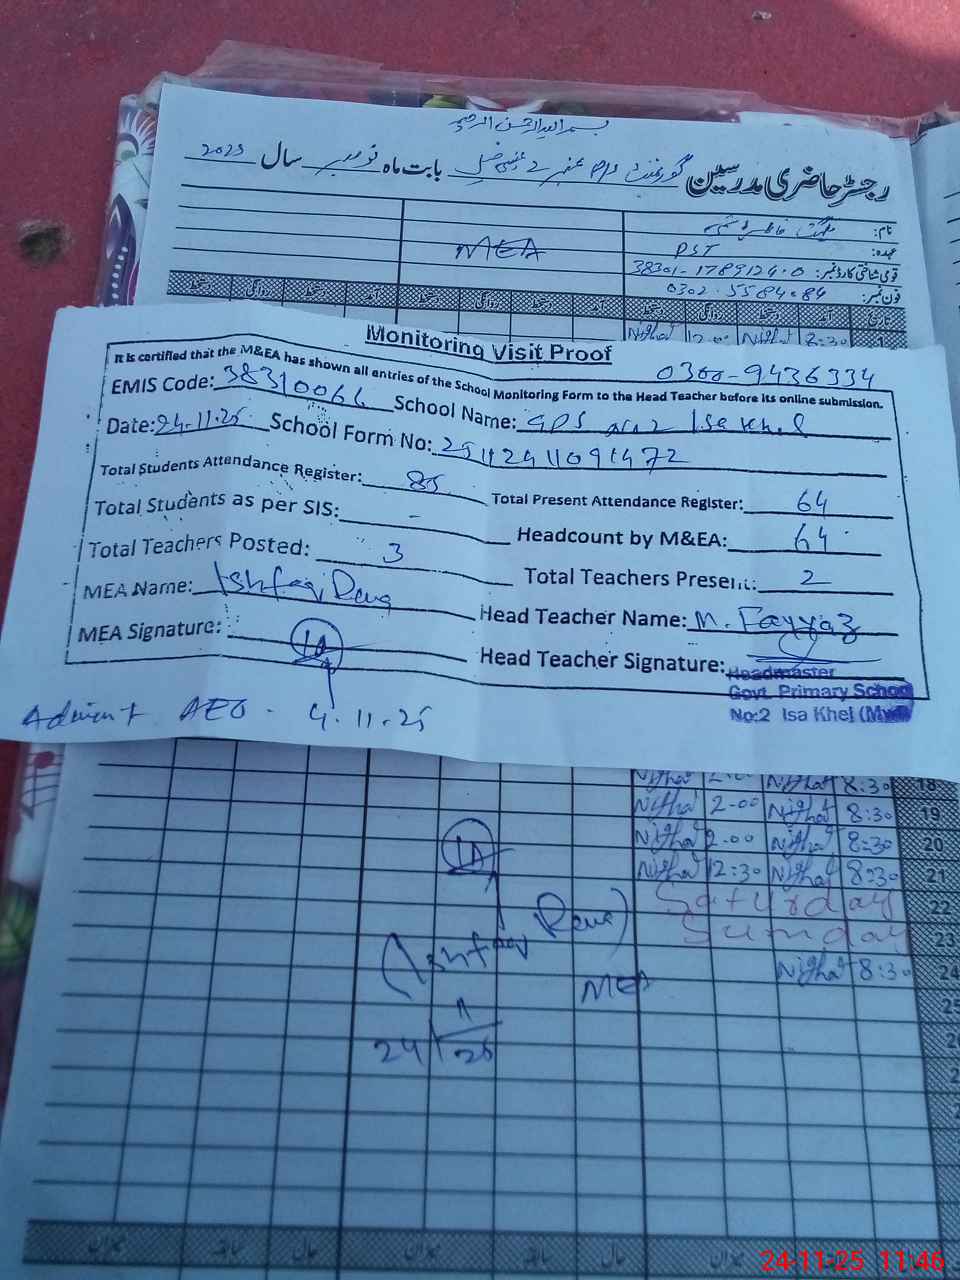 بسم اللہ الرحمن الرحیم
رجسٹر حاضری مدرسین گورنمنٹ نمبر 2 عیسیٰ خیل بابت ماہ نومبر سال 2025
نام:
عہدہ: PST
MEA
قومی شناختی کارڈ نمبر: 38301-1789124-0
فون نمبر: 0302-5584084
Nighat 12:00 Nighat 8:30 1
Monitoring Visit Proof
It is certified that the M&EA has shown all entries of the School Monitoring Form to the Head Teacher before its online submission.
0300-9436334
EMIS Code: 38310064 School Name: GPS No 2 Isa Khel
Date: 24-11-25 School Form No: 25112411091472
Total Students Attendance Register: 85 Total Present Attendance Register: 64
Total Students as per SIS: - Headcount by M&EA: 64
Total Teachers Posted: 3 Total Teachers Present: 2
MEA Name: Ishfaq Head Teacher Name: M. Fayyaz
MEA Signature: IA Head Teacher Signature:
Headmaster
Govt. Primary School
No:2 Isa Khel (Mwi)
AEO - 4-11-25
Nighat 2:00 Nighat 8:30 18
Nighat 2-00 Nighat 8:30 19
Nighat 2-00 Nighat 8:30 20
Nighat 12:30 Nighat 8:30 21
IA
Saturday 22
Sunday 23
(Ishfaq
Nighat 8:30 24
MEA
24/11/25
25
24-11-25 11:46